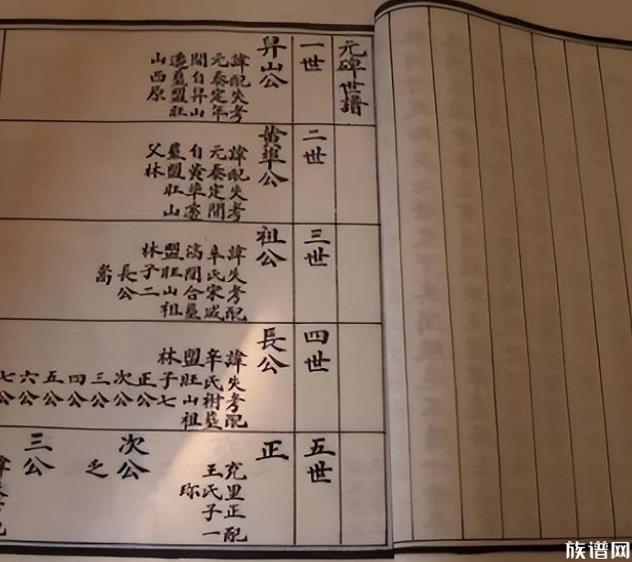 元碑世譜
一世
昇山公
諱配失考
元泰定年
間自昇山
遷墓盟旺
山西原
二世
埠公
諱配失考
元泰定間
自埠遷
墓盟旺山
父林
三世
祖公
諱失考配
牟氏宋
間合墓
盟旺山祖
林子二
長公
四世
長公
諱失考配
辛氏柎墓
盟旺山祖
林子七
正公
次公
三公
四公
五公
六公
七公
五世
正
充里正配
王氏子一
珎
次公
乏
三公
族谱网